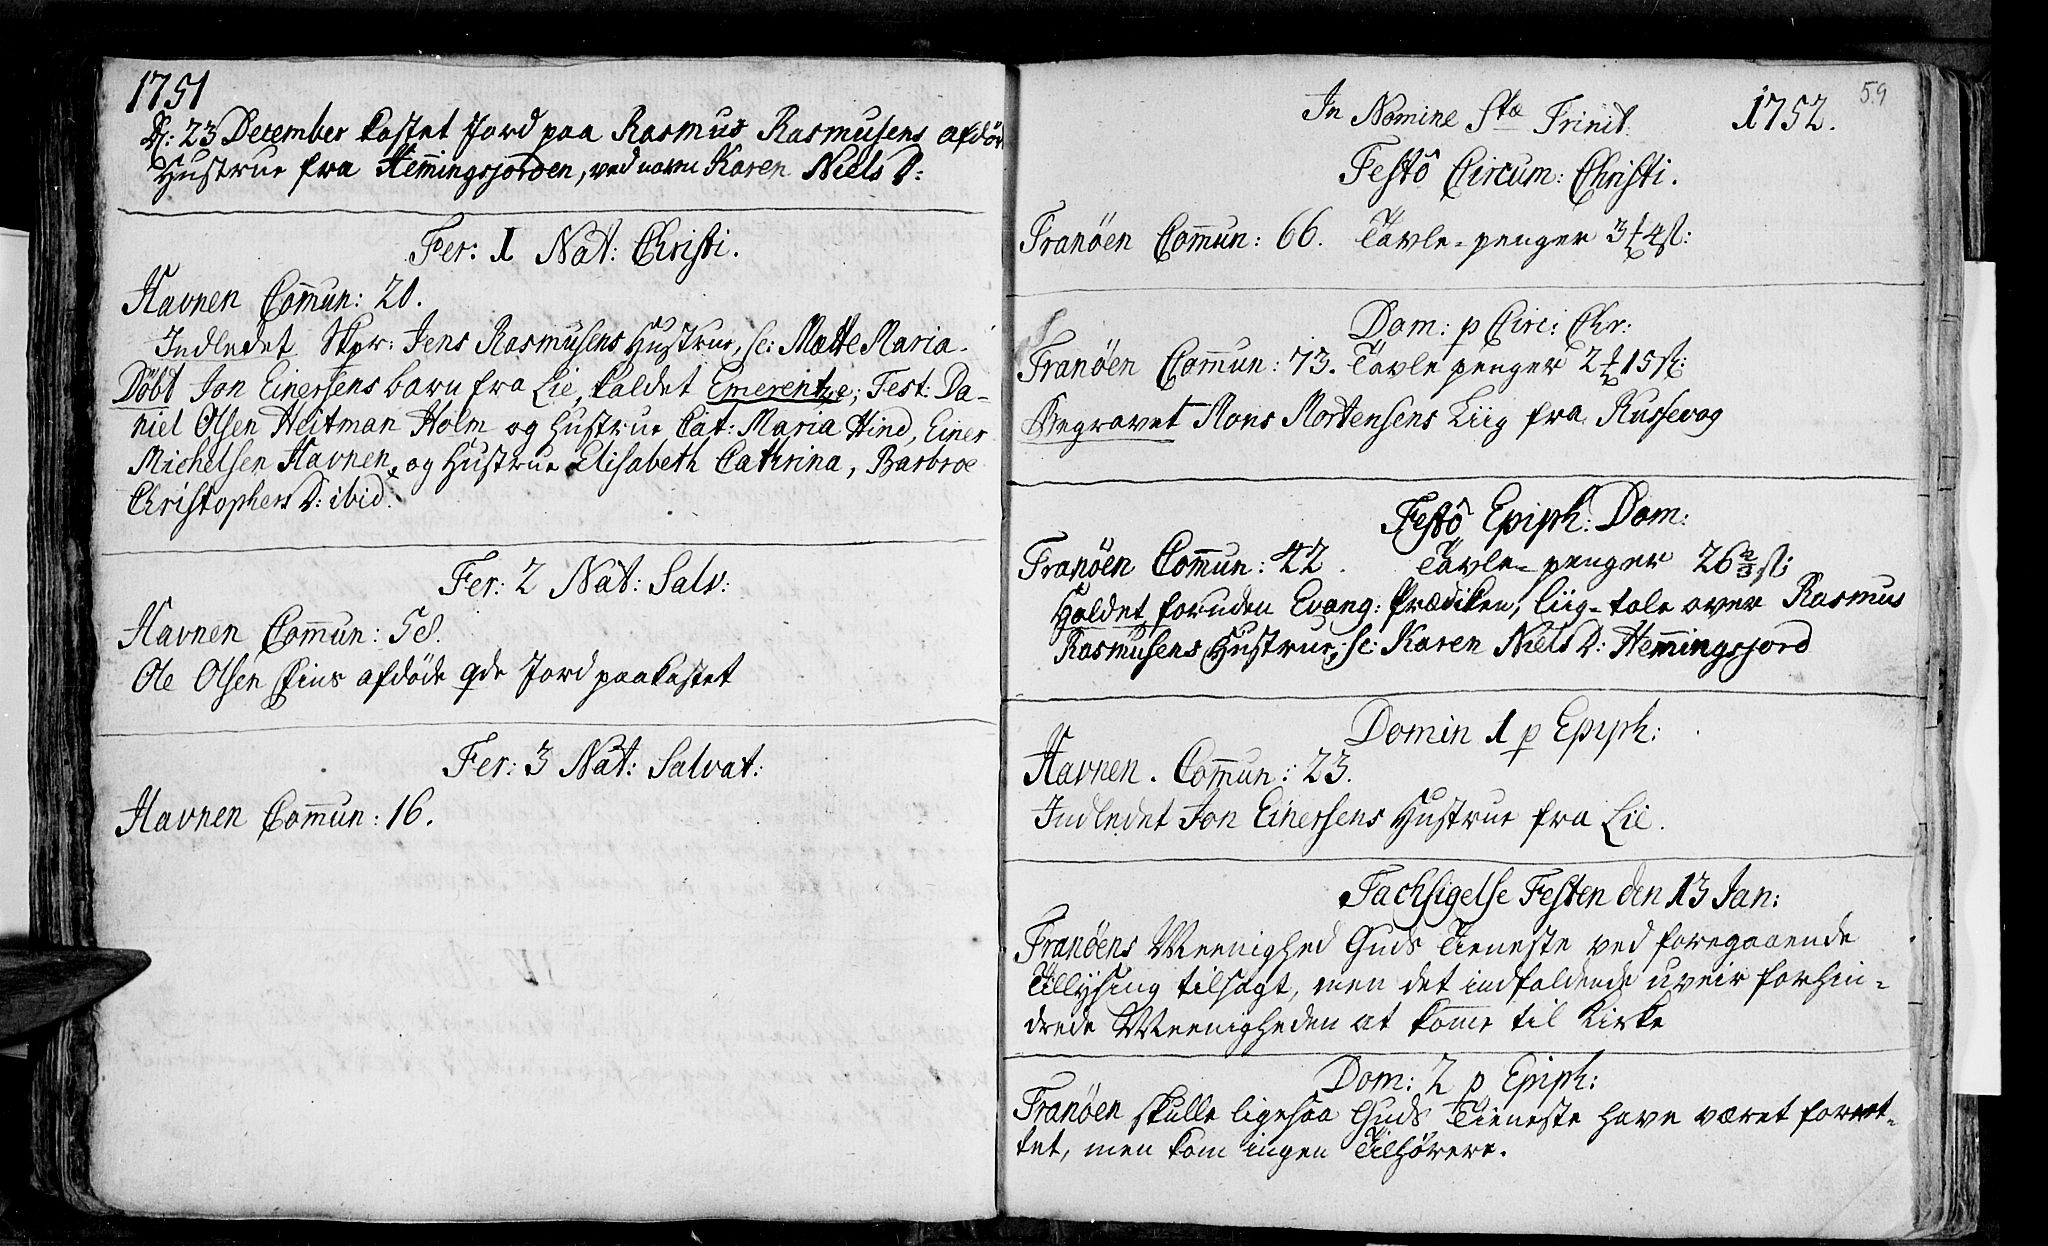 1751
D: 23 December kastet Jord paa Rasmus Rasmusens afdöde
Hustrue fra Hem̄ingsjorden, ved navn Karen Niels D:
Fer: 1 Nat: Christi.
Havnen Com̄un: 20.
Indledet Skpr: Jens Rasmusens Hustrue, sc: Mætte Maria.
Döbt Jon Einersens barn fra Lie, kaldet Emerentze; Test: Da-
niel Olsen Heitman Holm og Hustrue Cat: Maria Hind, Einer
Michelsen Havnen, og Hustrue Elisabeth Cathrina, Barbroe
Christophers D: ibid.
Fer: 2 Nat: Salv:
Havnen Com̄un: 58.
Ole Olsen afdöde Jord paakastet
Fer: 3 Nat: Salvat:
Havnen Com̄un: 16.
59
In Nomine Stæ Trinit: 1752.
Festô Circum: Christi.
Tranöen Com̄un: 66. Tavle-penger 3 4 sl:
Dom: p Circ: Chr:
Tranöen Com̄un: 73. Tavle penger 2 15 sl:
Begravet Mons Mortensens Liig fra Russevog
Festô Epiph: Dom:
Tranöen Com̄un: 42. Tavle-penger 26 2/3 sl:
Holdet foruden Evang: Prædiken, liig-tale over Rasmus
Rasmusens Hustrue, sc: Karen Niels D: Hem̄ingsjord
Domin 1 p Epiph:
Havnen. Com̄un: 23.
Indledet Jon Einersens Hustrue fra Lie.
Tachsigelse Festen den 13 Jan:
Tranöens Meenighed Guds Tieneste ved foregaaende
Tillysing tilsagt, men det indfaldende uveir forhin-
drede Meenigheden at kom̄e til Kirke
Dom: 2 p Epiph:
Tranöen skulle ligesaa Guds Tieneste have været forret-
tet, men kom ingen Tilhörere.